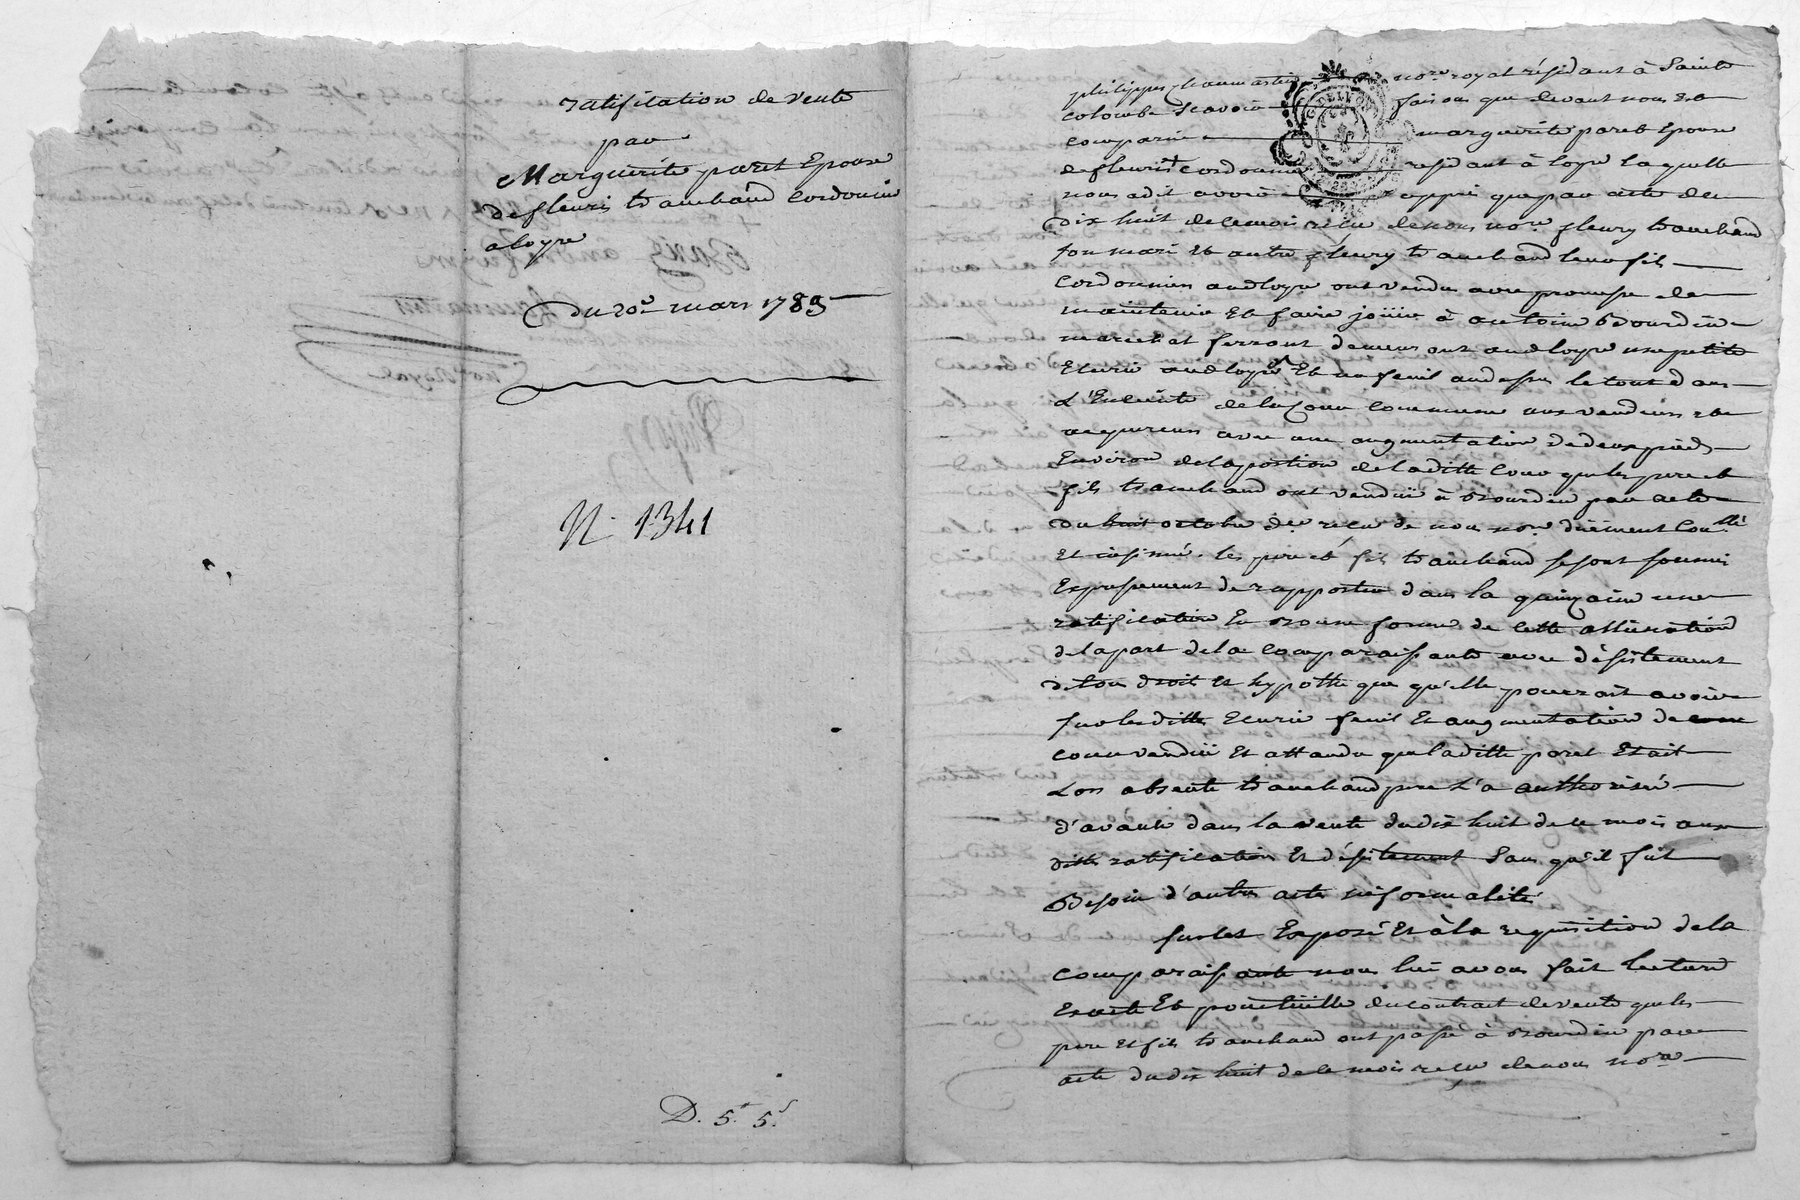 ratification de vente
par
Marguerite paret Epouse
de fleuris touchand Cordonnier
a loyre
Du 20e mars 1789
N. 1341
D. 5.# 5.s
philippe chaumartin nore royal résidant à Sainte
colombe Scavoir faisons que devant nous est
comparue marguerite paret Epouse
de fleurist cordonnier residant à loyre laquelle
nous a dit avoir appris que par acte du
dix huit de ce mois recu de nous nore fleury touchand
son mari et autre fleury touchand leur fils
Cordonnier audloyre ont vendu avec promesse de
maintenir Et faire jouir à antoine Bourdin
marechal ferrant demeurant audloyre une petite
Ecurie audloyre Et un fenil au dessus le tout dans
L'Enceinte de la Cour commune aux vendeurs et
acquereur avec une augmentation de deux pieds
Environ de la portion de laditte Cour que les pere et
fils touchand ont vendu à Bourdin par acte
du huit octobre der recu de nous nore duement Conllé
Et insinué. les pere et fils touchand se sont soumis
Expressement de rapporter dans la quinzaine une
ratification En bonne forme de cette alliénation
de la part de la comparaissante avec désistement
de tou droit et hypotheque qu'elle pourrait avoir
sur les dittes Ecurie fenil Et augmentation de
cour vendu Et attendu que laditte paret Etait
Lors absente touchand pere L'a authorisée
d'avance dans la vente du dix huit de ce mois aux
dittes ratification Et désistement Sans qu'il fut
Besoin d'autre acte ni formalité
Sur cet Exposé Et à la requisition de la
comparaissante nous lui avons fait lecture
Exacte Et ponctuelle du contrat de vente que les
pere et fils touchand ont passé à Bourdin par
acte du dix huit de ce mois recu de nous nore